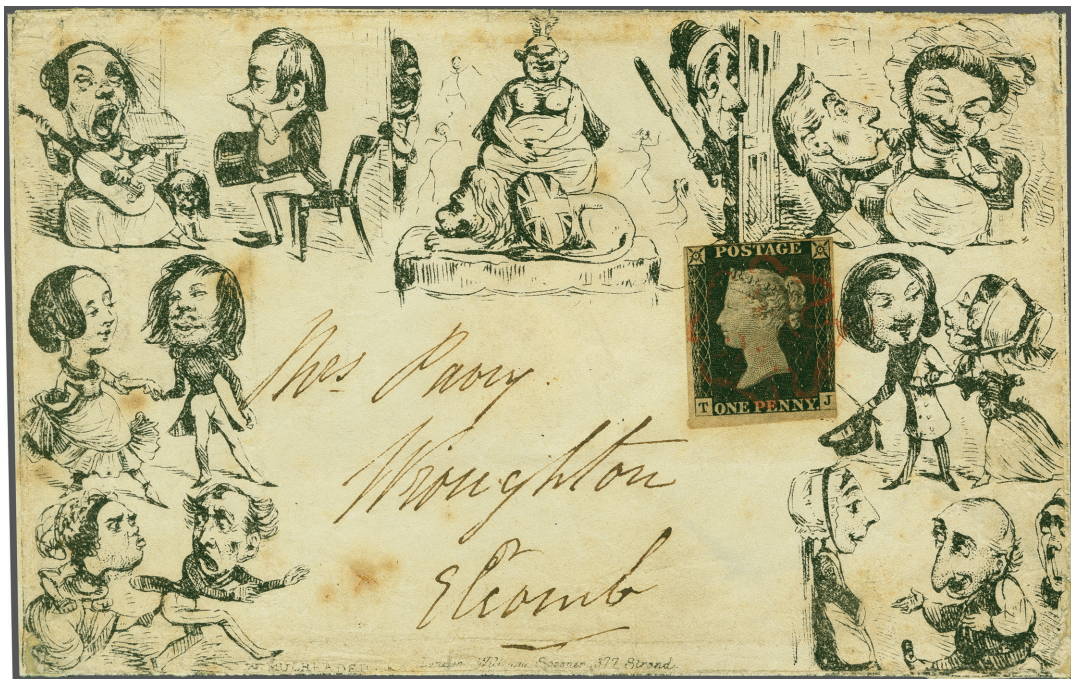 POSTAGE
T ONE PENNY J
Mrs Pavry.
Wroughton
Elcomb
London William Spooner 377 Strand.